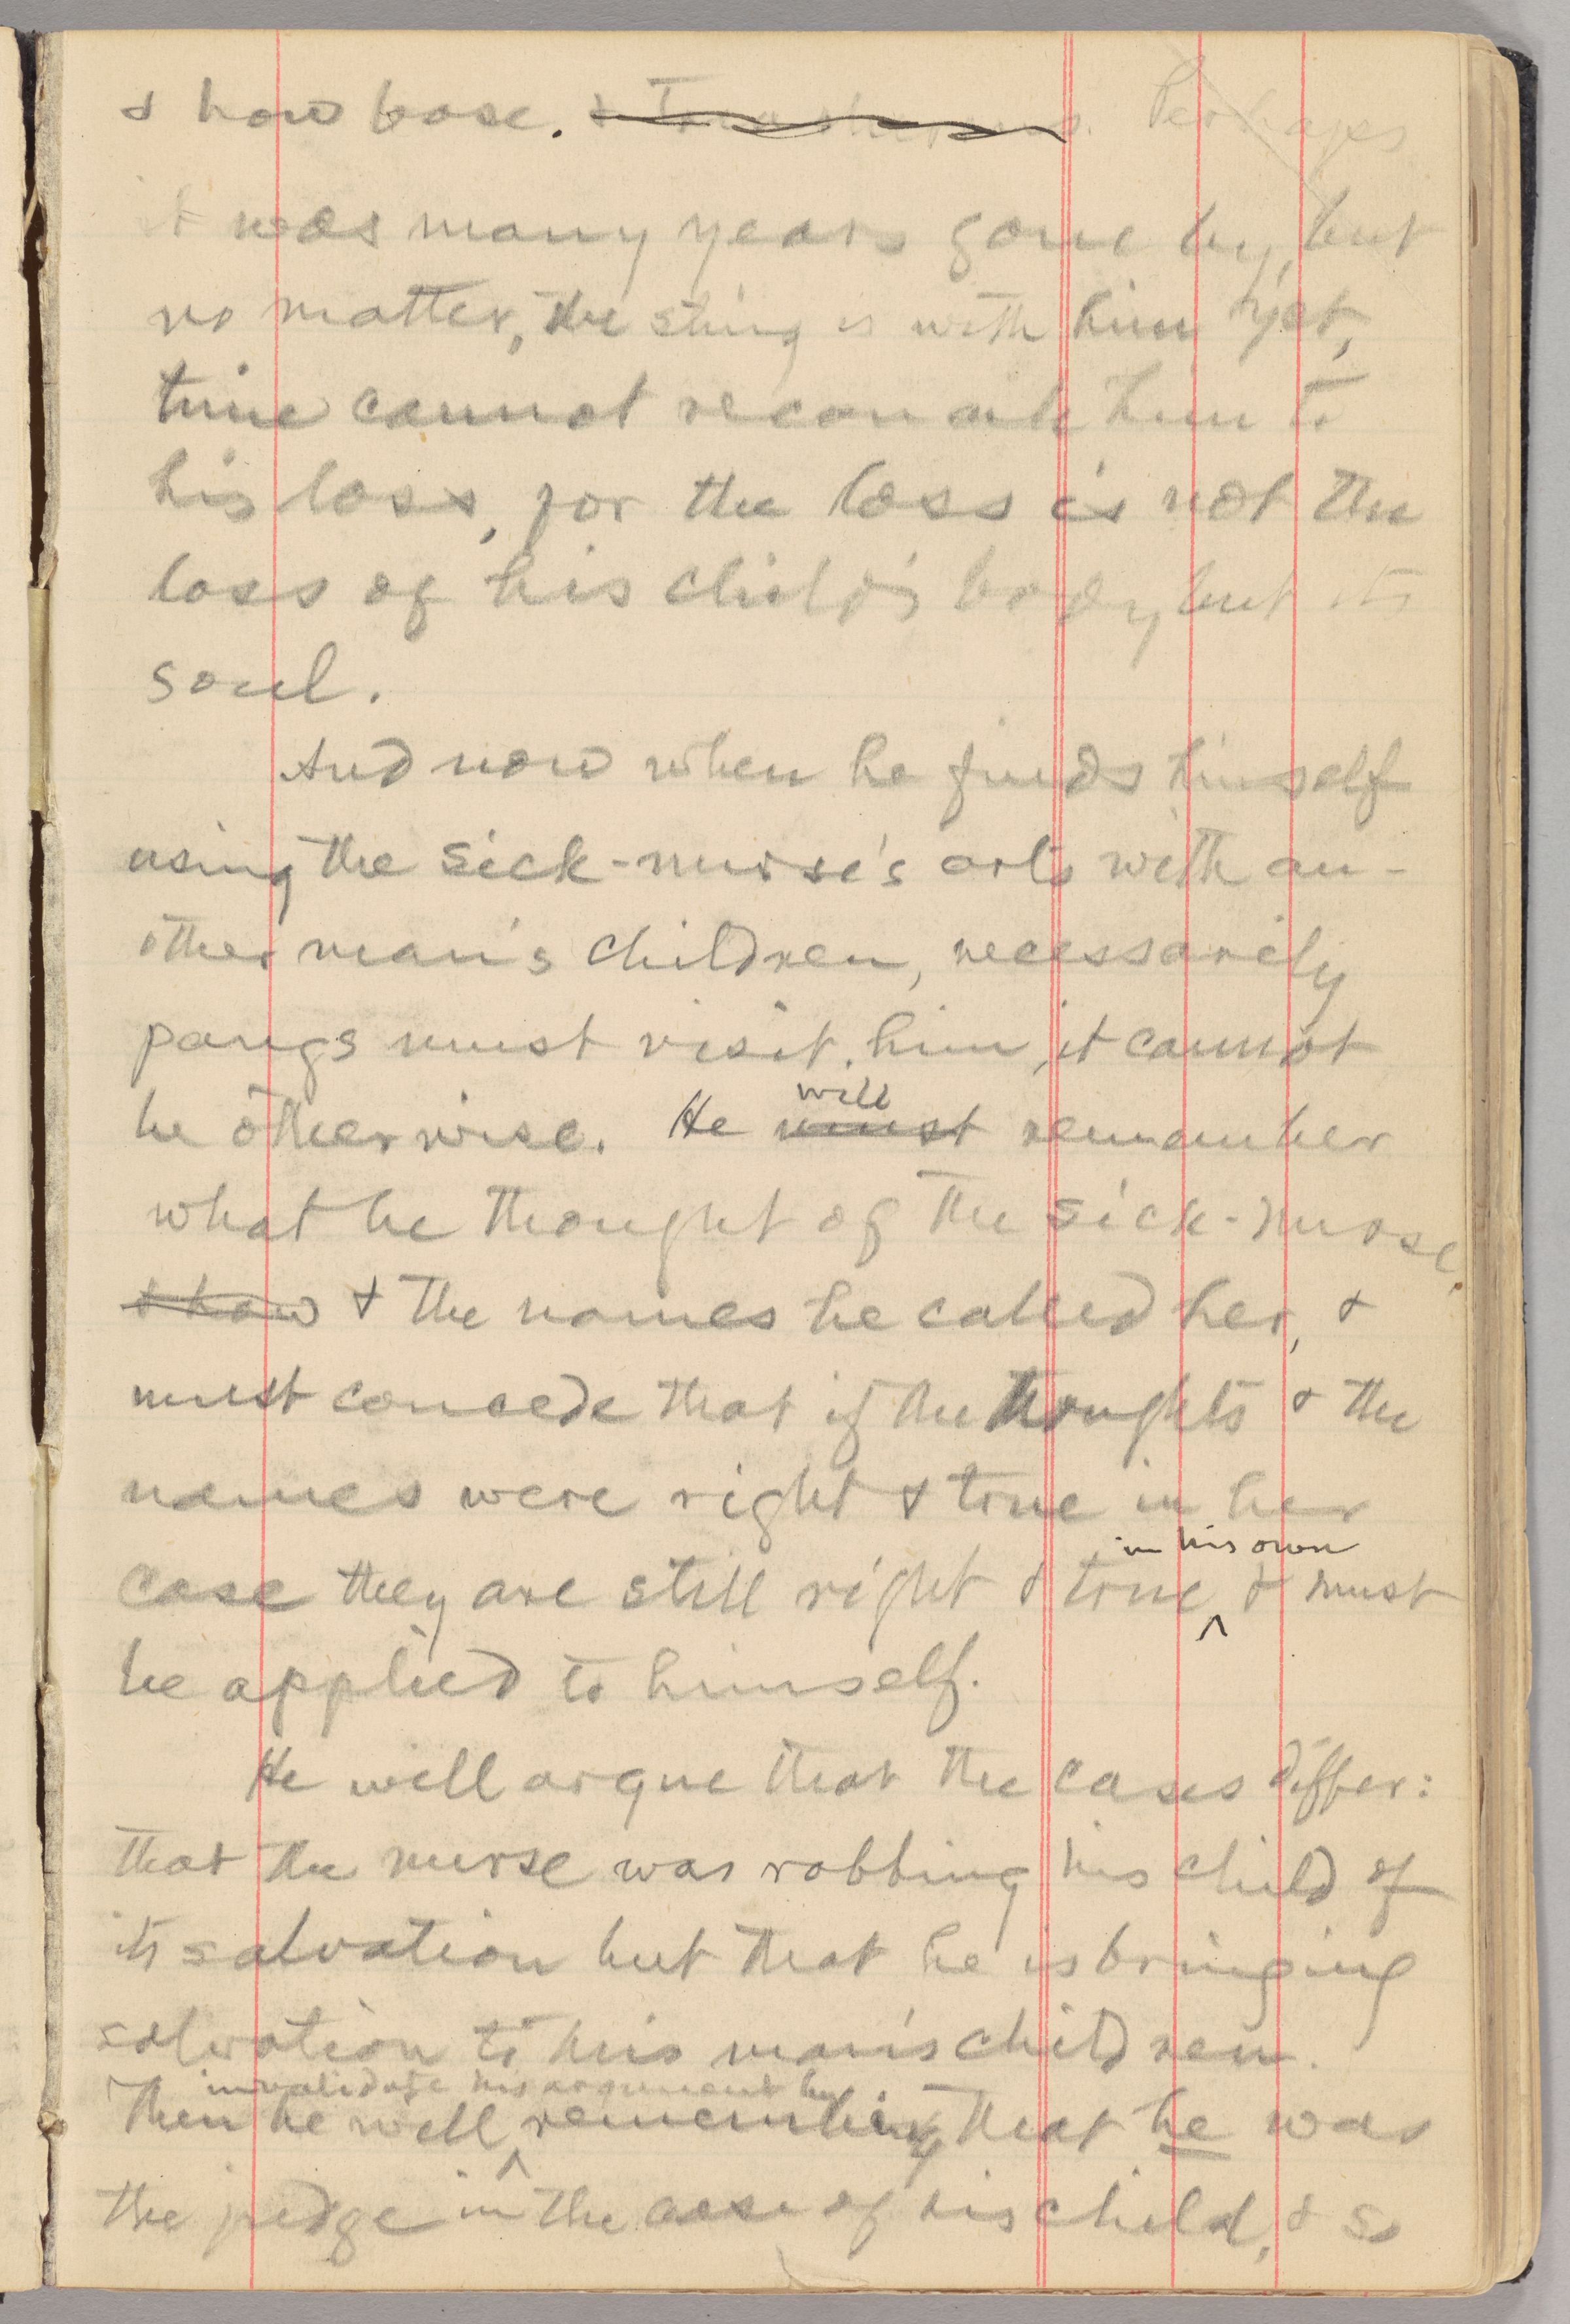 & how base. & treacherous. Perhaps
it was many years gone by, but
no matter, the sting is with him yet,
time cannot reconcile him to
his loss, for the loss is not the
loss of his child's body, but its
soul.
And now when he finds himself
using the sick-nurse's arts with an-
other man's children, necessarily
pangs must visit him, it cannot
be otherwise. He must will remember
what he thought of the sick-nurse,
& how & the names he called her, &
must concede that if the thoughts & the
names were right & true in her
case they are still right & true in his own & must
be applied to himself.
He will argue that the cases differ:
that the nurse was robbing his child of
its salvation but that he is bringing
salvation to this man's children.
Then he will invalidate his argument by remembering that he was
the judge in the case of his child, & so